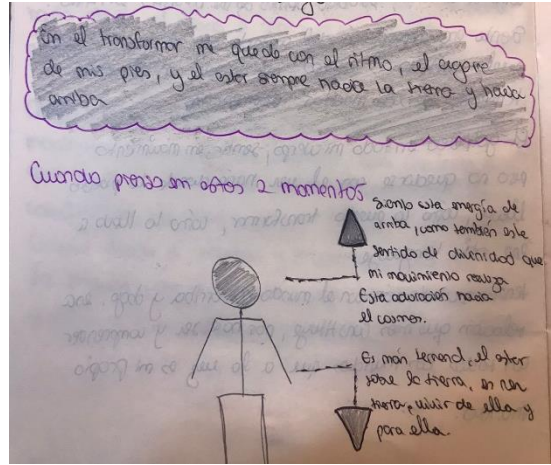 En el transformar me quedo con el ritmo, el agarre
de mis pies, y el estar siempre hacia la tierra y hacia
arriba
Cuando pienso en estos 2 momentos
Siento esta energía de
arriba, como también este
sentido de divinidad que
mi movimiento realiza.
Esta adoración hacia
el cosmos.
Es más terrenal, el estar
sobre la tierra, en
tierra, vivir de ella y
para ella.